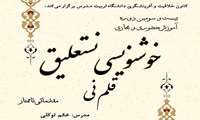 کانون خلاقیت و آفرینشگری دانشگاه تربیت مدرس برگزار می‌کند:
بیست و سومین دوره
آموزش حضوری و مجازی
خوشنویسی نستعلیق
قلم نی
مقدماتی تا ممتاز
مدرس: خانم توکلی